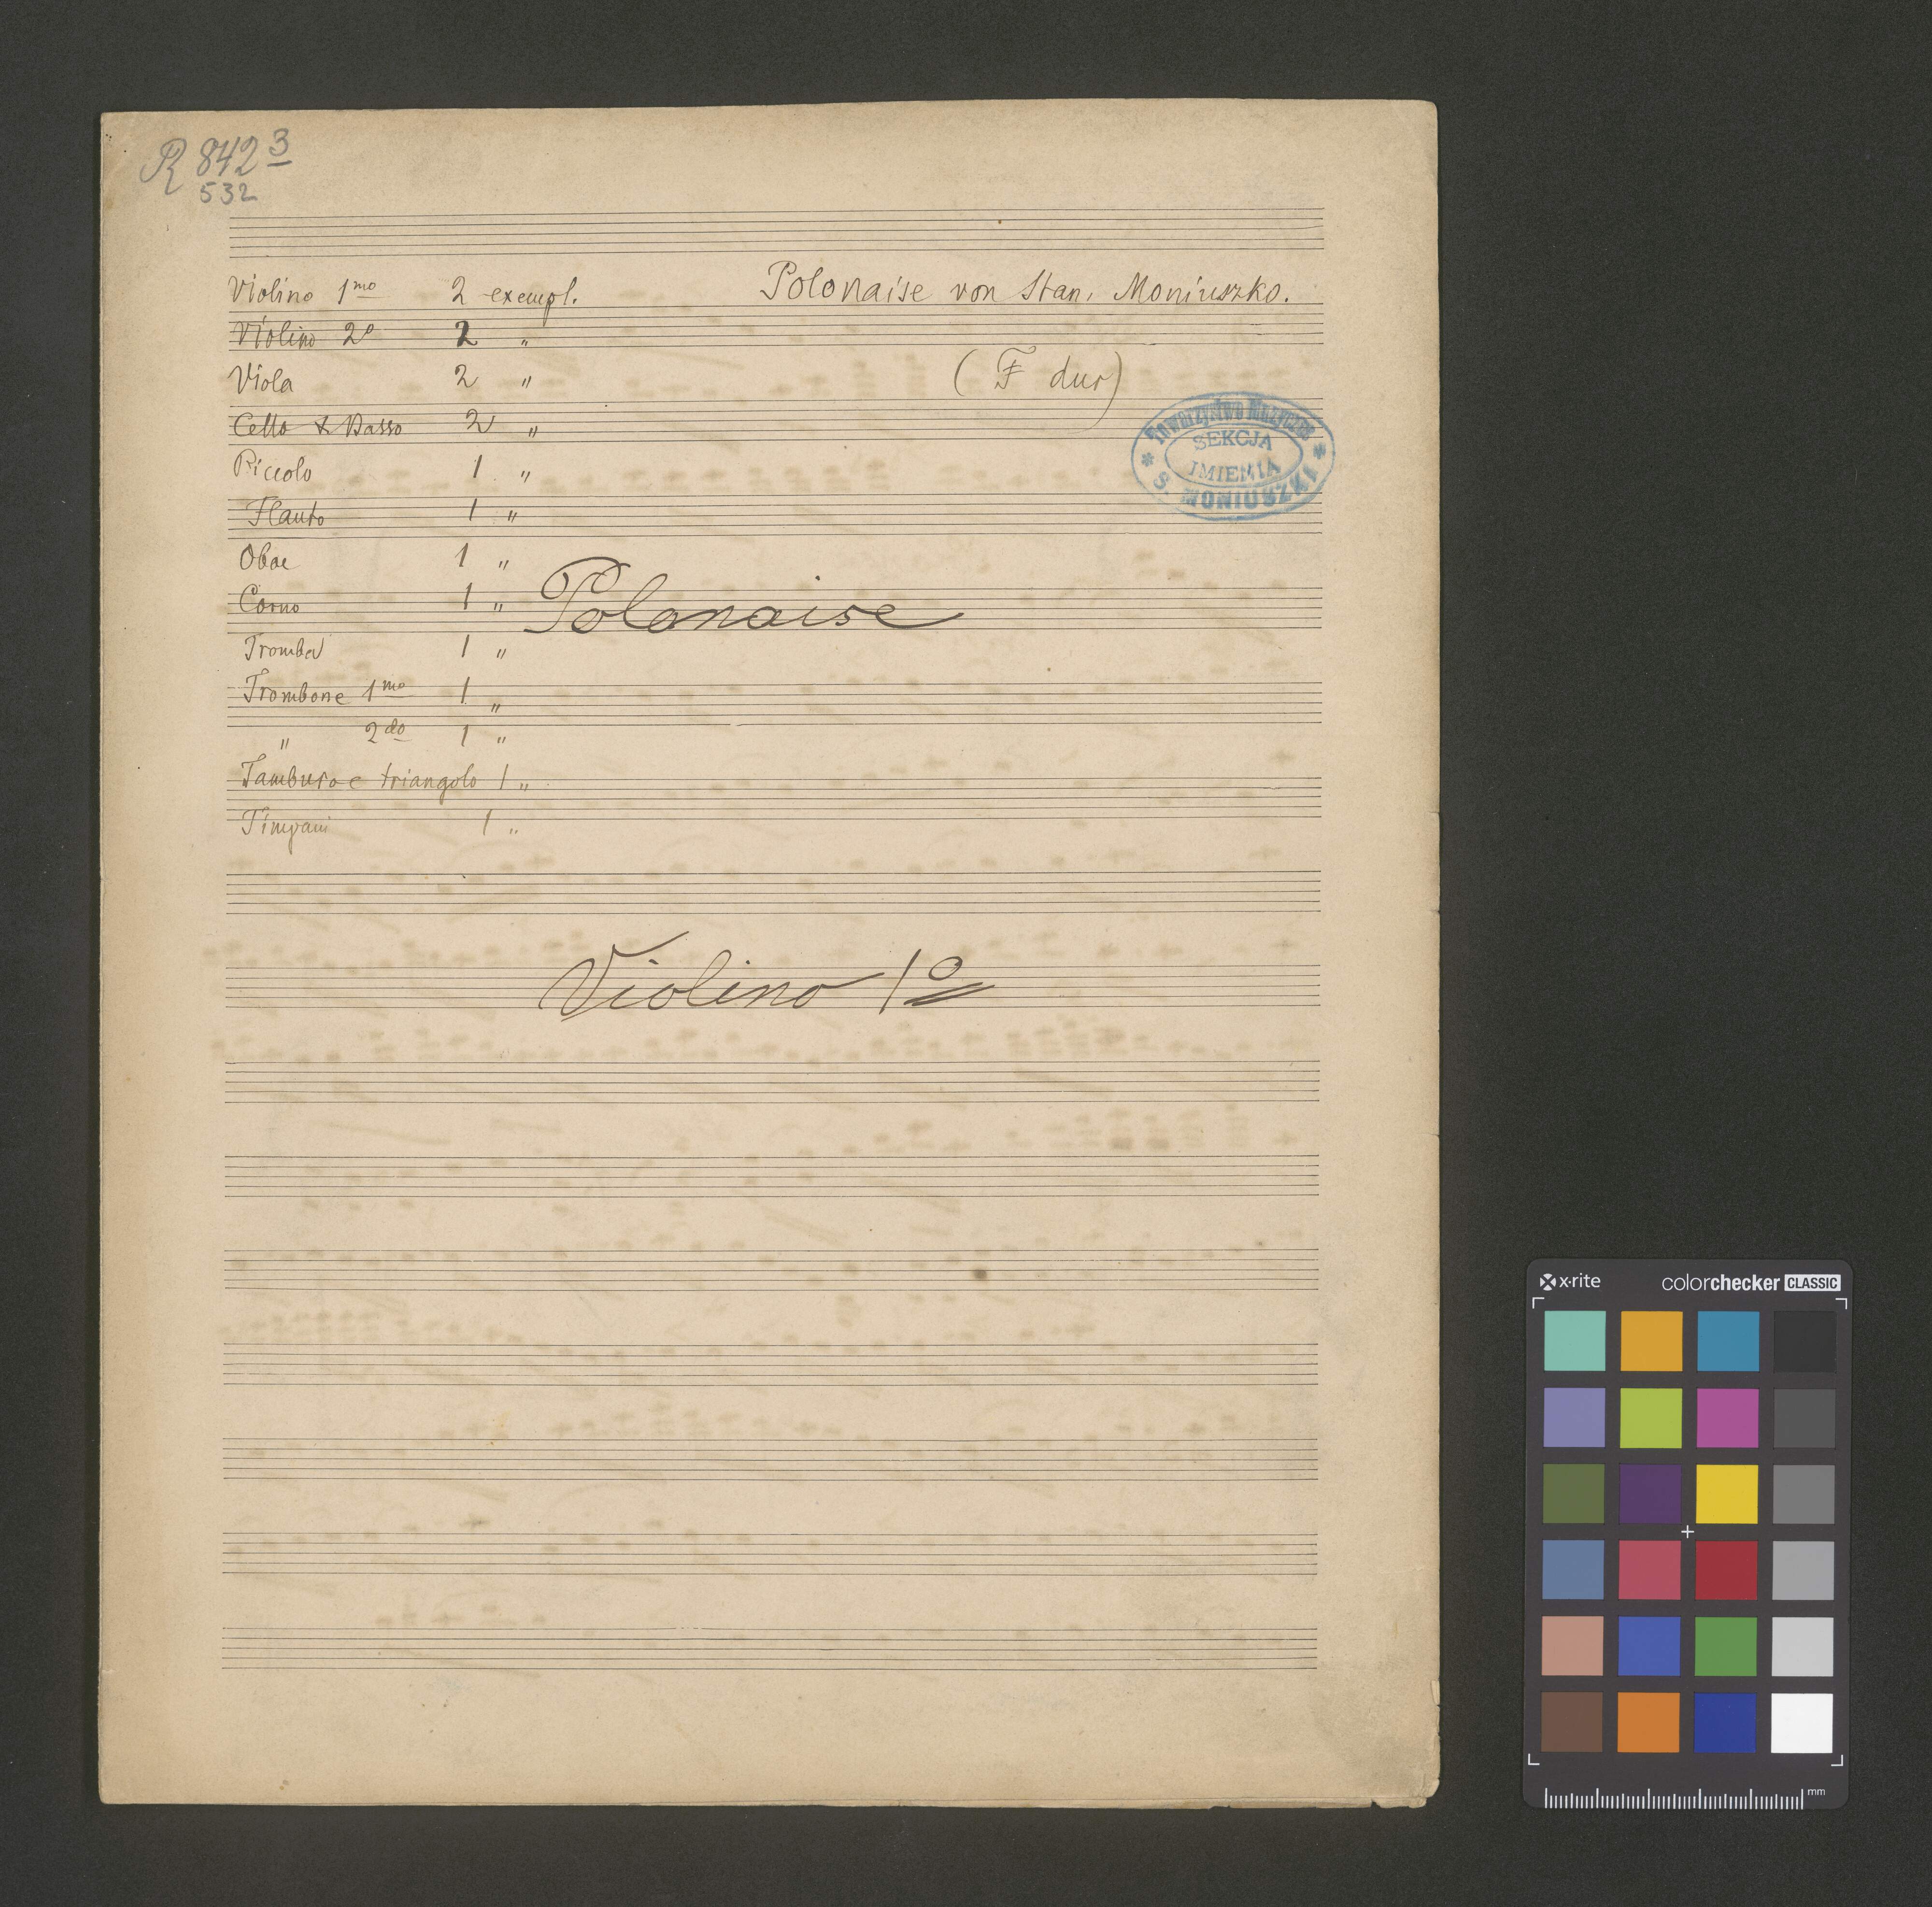 R 842 3
532
Violino 1mo 2 exempl.
Polonaise von Stan. Moniuszko.
Violino 2o 2 "
Viola 2 "
(F dur)
Cello & Basso 2 "
Towarzystwo Muzyczne
SEKCJA
IMIENIA
S. MONIUSZKI
Piccolo 1 "
Flauto 1 "
Oboe 1 "
Corno 1 "
Polonaise
Tromba 1 "
Trombone 1mo 1 "
" 2do 1 "
Tamburo e triangolo 1 "
Timpani 1 "
Violino 1o
x·rite colorchecker CLASSIC
mm